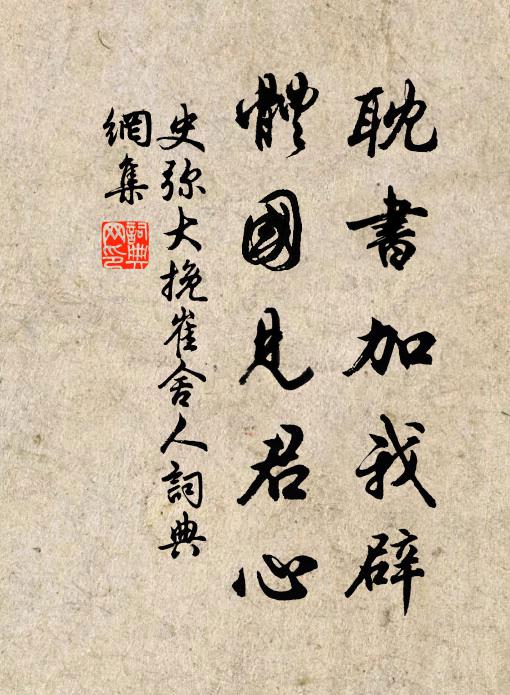 耽書加我辟
體國見君心
史弥大挽崔舍人詞典
網集
詞典
网印